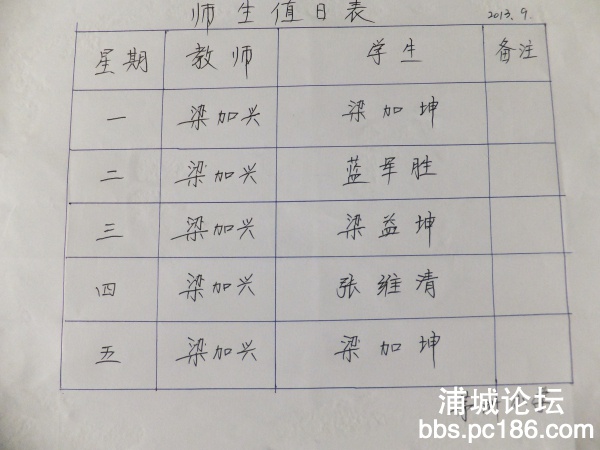 师生值日表 2013.9.
星期 教师 学生 备注
一 梁加兴 梁加坤
二 梁加兴 蓝军胜
三 梁加兴 梁益坤
四 梁加兴 张维清
五 梁加兴 梁加坤
浦城论坛
bbs.pc186.com